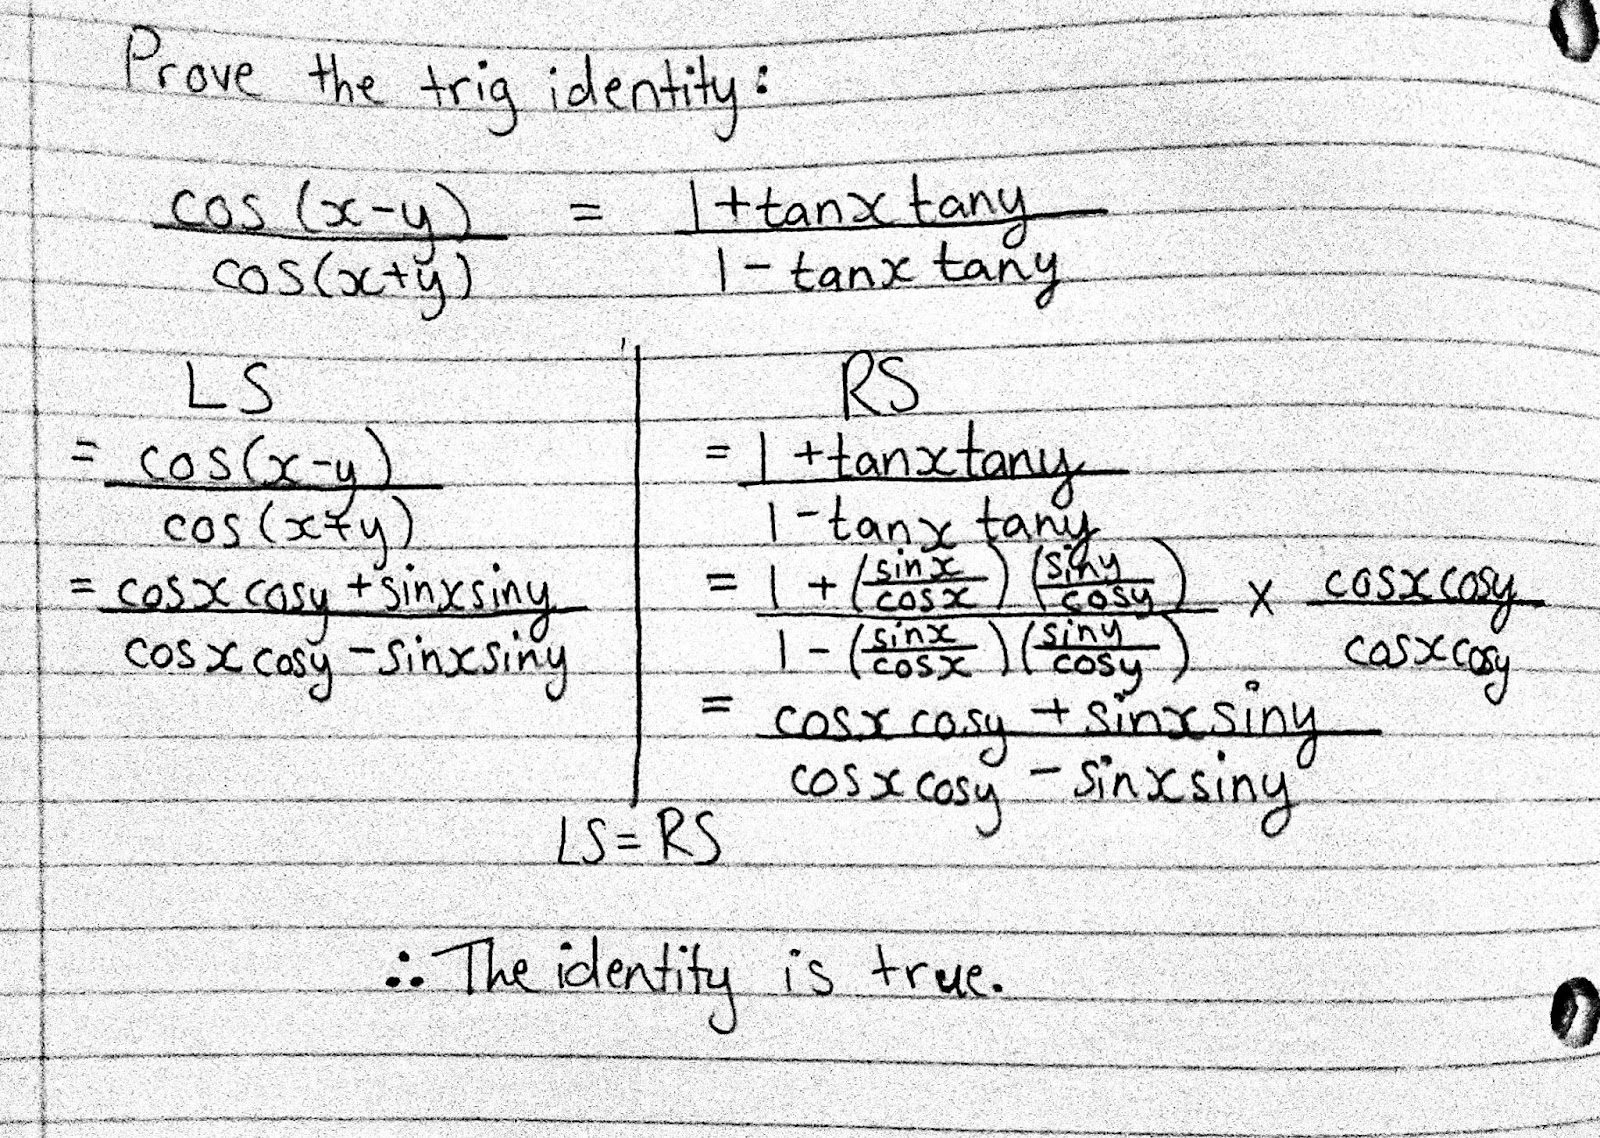 Prove the trig identity:
cos (x-y) = 1+tanx tany
cos(x+y) 1- tanx tany
LS
= cos(x-y)
cos(x+y)
= cosx cosy + sinxsiny
cosx cosy - sinxsiny
RS
= 1 + tanx tany
1 - tanx tany
= 1 + (sinx/cosx) (siny/cosy) x cosx cosy
1 - (sinx/cosx) (siny/cosy) cosx cosy
= cosx cosy + sinx siny
cosx cosy - sinx siny
LS = RS
∴ The identity is true.